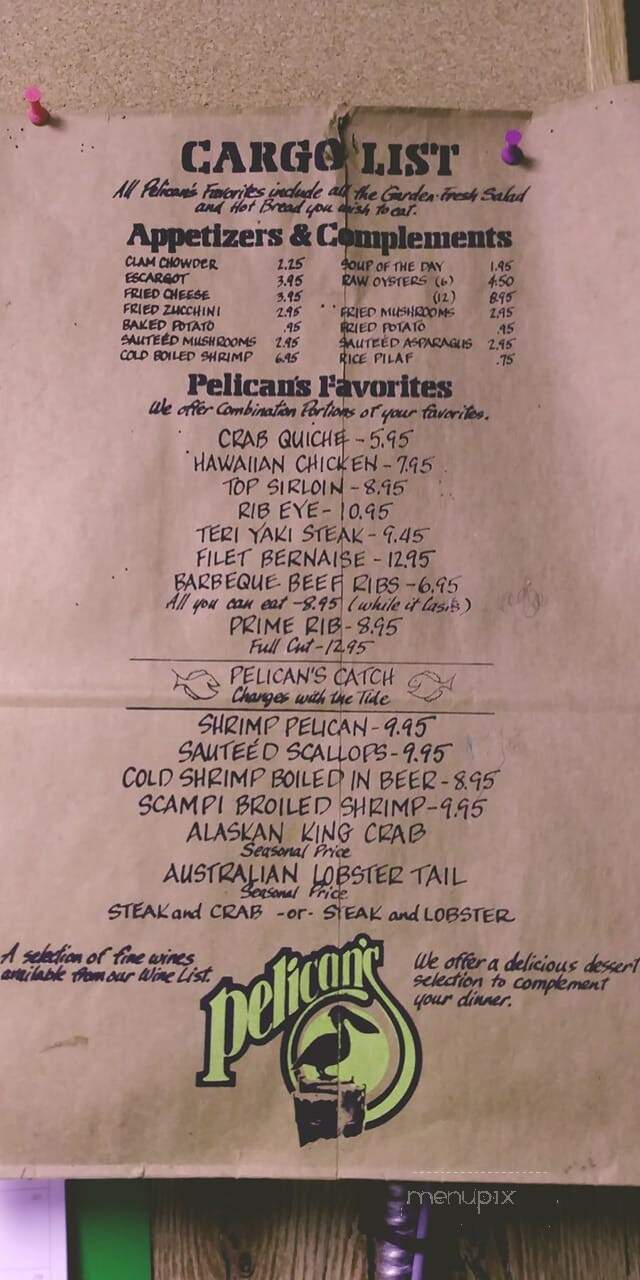 CARGO LIST
All Pelican's Favorites include all the Garden-Fresh Salad
and Hot Bread you wish to eat.
Appetizers & Complements
CLAM CHOWDER 2.25
ESCARGOT 3.95
FRIED CHEESE 3.95
FRIED ZUCCHINI 2.95
BAKED POTATO .95
SAUTEÉD MUSHROOMS 2.95
COLD BOILED SHRIMP 6.95
SOUP OF THE DAY 1.95
RAW OYSTERS (6) 4.50
(12) 8.95
FRIED MUSHROOMS 2.95
FRIED POTATO .95
SAUTEÉD ASPARAGUS 2.95
RICE PILAF .75
Pelican's Favorites
We offer Combination Portions of your favorites.
CRAB QUICHE - 5.95
HAWAIIAN CHICKEN - 7.95
TOP SIRLOIN - 8.95
RIB EYE - 10.95
TERI YAKI STEAK - 9.45
FILET BERNAISE - 12.95
BARBEQUE BEEF RIBS - 6.95
All you can eat - 8.95 (while it lasts)
PRIME RIB - 8.95
Full Cut - 12.95
PELICAN'S CATCH
Changes with the Tide
SHRIMP PELICAN - 9.95
SAUTEÉD SCALLOPS - 9.95
COLD SHRIMP BOILED IN BEER - 8.95
SCAMPI BROILED SHRIMP - 9.95
ALASKAN KING CRAB
Seasonal Price
AUSTRALIAN LOBSTER TAIL
Seasonal Price
STEAK and CRAB - or - STEAK and LOBSTER
A selection of fine wines
available from our Wine List.
pelican's
We offer a delicious dessert
selection to complement
your dinner.
menupix